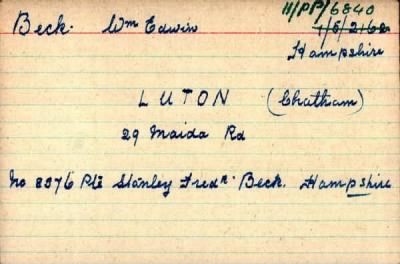 Beck. Wm Edwin 11/PP/6840
1/5/2162
Hampshire
LUTON (Chatham)
29 Maida Rd
No 8376 Pte Stanley Fredk. Beck. Hampshire